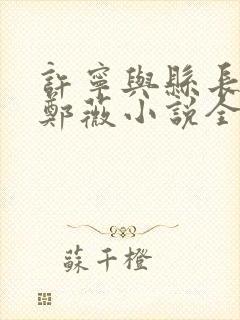 許寧與縣長
鄭薇小説全
蘇千橙